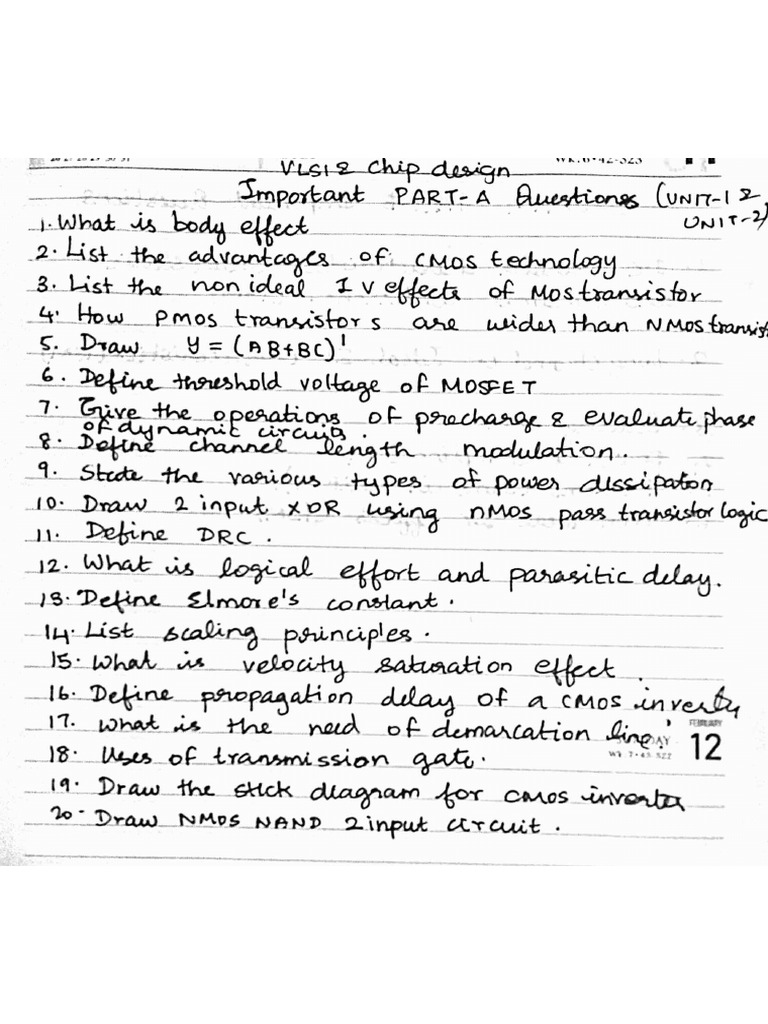 VLSI & Chip design
Important PART-A Questions (UNIT-1 &
UNIT-2)
1. What is body effect
2. List the advantages of CMOS technology
3. List the non ideal I V effects of Mos transistor
4. How PMOS transistors are wider than NMOS transist
5. Draw Y = (AB+BC)'
6. Define threshold voltage of MOSFET
7. Give the operations of precharge & evaluate phase
of dynamic circuits.
8. Define channel length modulation.
9. State the various types of power dissipaton
10. Draw 2 input XOR using nMOS pass transistor logic
11. Define DRC.
12. What is logical effort and parasitic delay.
13. Define Elmore's constant.
14. List scaling principles.
15. What is velocity saturation effect.
16. Define propagation delay of a CMOS inverter
17. What is the need of demarcation line.
FEBRUARY
12
18. Uses of transmission gate.
19. Draw the stick diagram for CMOS inverter
20. Draw NMOS NAND 2 input circuit.